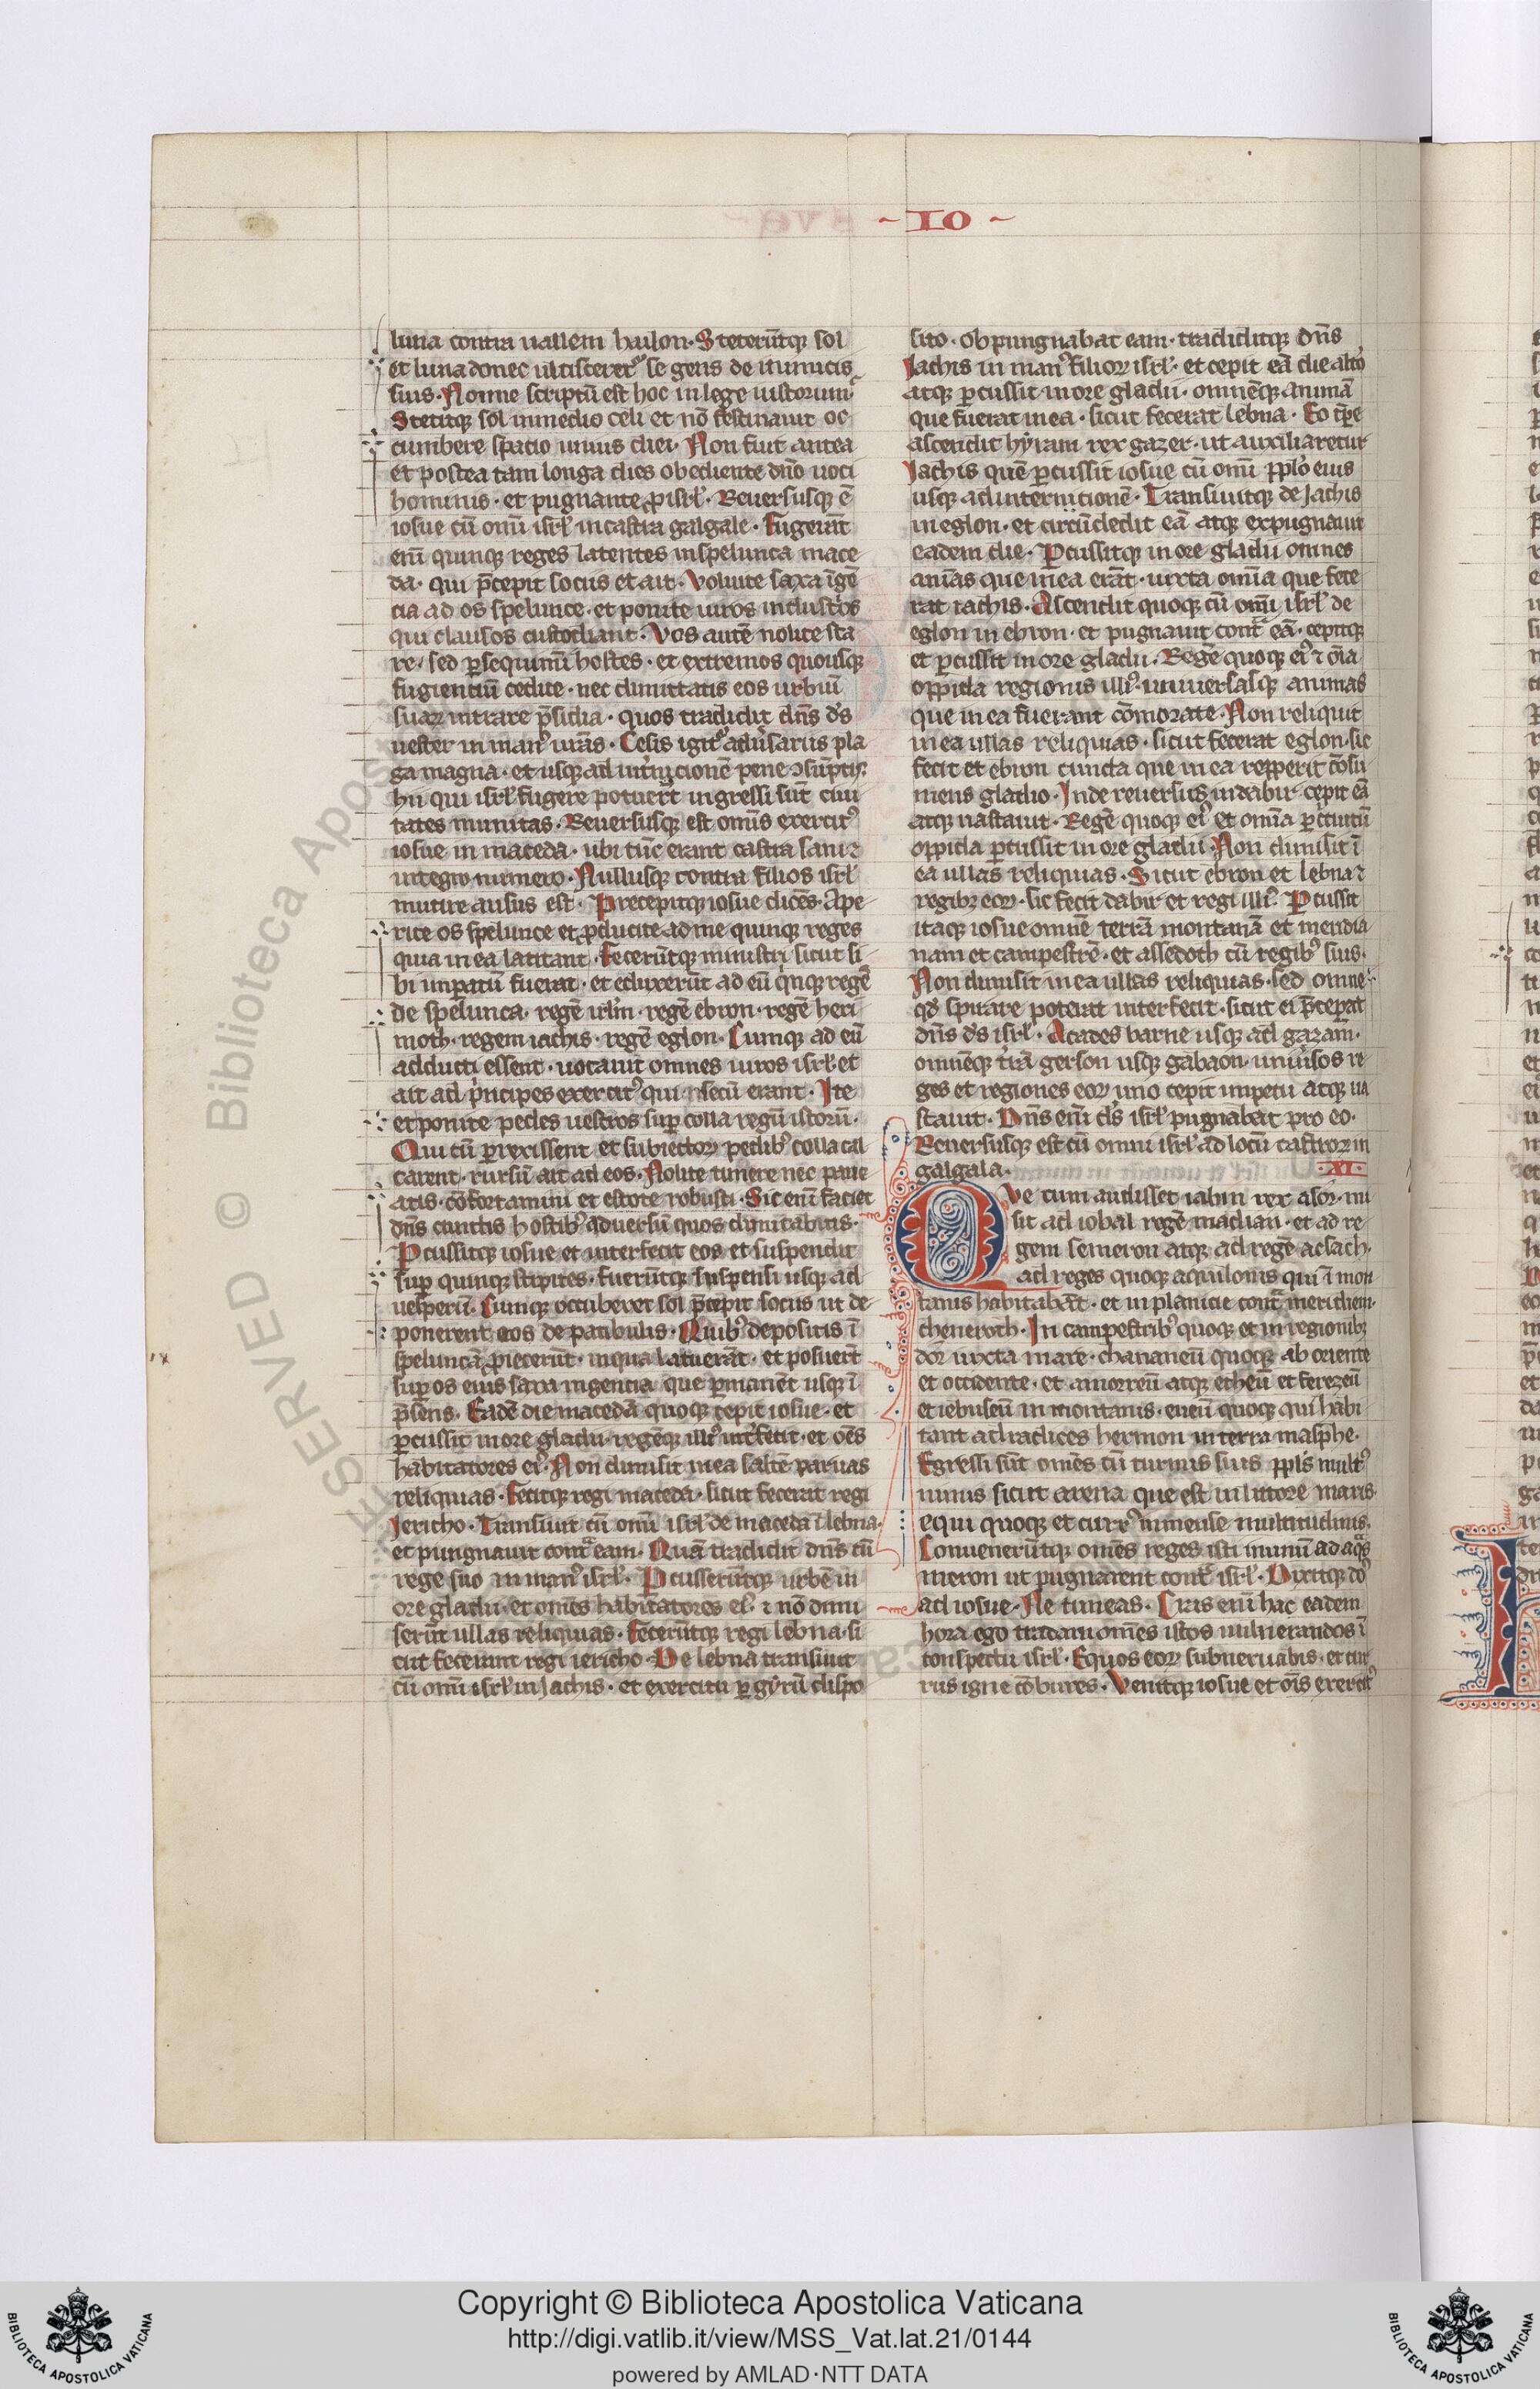 ~ IO ~
luna contra uallem hailon. Steterūtq; sol
et luna donec ulcisceret᷒ se gens de inimicis
suis. Nonne scriptū est hoc in lege iustorum.
Stetitq; sol in medio celi et nō festinauit oc
cumbere spacio unius diei. Non fuit antea
et postea tam longa dies obediente dn̄o uoci
hominis. et pugnante ꝓ isrl̓. Reuersusq; ē
iosue cū om̄i isrl̓ in castra galgale. Fugerāt
eni᷒ quinq; reges latentes in spelunca mace
da. qui p̄cepit sociis et ait. Voluite saxa īgē
cia ad os spelunce. et ponite uiros industrios
qui clausos custodiant. Vos autē nolite sta
re. sed ꝑsequimī hostes. et extremos quousq;
fugientiū cedite. nec dimittatis eos urbiū
suaꝝ intrare p̄sidia. quos tradidit dn̄s d̓s
uester in man᷒ ur̄as. Cesis igit᷒ adu̓sariis pla
ga magna. et usq; ad int̓nicionē pene ↄsūptis.
hii qui isrl̓ fugere potuer̄t ingressi sūt ciui
tates munitas. Reuersusq; est om̄is exercit᷒
iosue in maceda. ubi tūc erant castra sani ⁊
integro numero. Nullusq; contra filios isrl̓
mutire ausus est. Precepitq; iosue dicēs. Ape
rite os spelunce et ꝓducite ad me quinq; reges
qui in ea latitant. Fecerūtq; ministri sicut si
bi imꝑatū fuerat. et eduxerūt ad eū quinq; reges
de spelunca. regē irlm̄. regē ebron. regē heri
moth. regem iachis. regē eglon. Cumq; ad eū
adducti essent. uocauit omnes uiros isrl̓. et
ait ad p̓ncipes exercit᷒ qui secū erant. Ite
et ponite pedes uestros suꝑ colla regū istorū.
Qui cū ꝑrexissent et subiectoꝝ pedib᷒ colla cal
carent. rursū ait ad eos. Nolite timere nec paue
atis. cōfortamini et estote robusti. Sic eni᷒ faciet
dn̄s cunctis hostib᷒ aduersū quos dimicabitis.
Ꝑcussitq; iosue et interfecit eos et suspendit
suꝑ quinq; stipites. fuerūtq; suspensi usq; ad
uesperū. Cumq; occuberet sol p̄cepit sociis ut de
ponerent eos de patibulis. Quib᷒ depositis ī
speluncā ꝓiecerūt. in qua latuerāt. et posuer̄t
suꝑ os eius saxa ingencia. que ꝑmanēt usq; ī
p̄sens. Eadē die macedā quoq; cepit iosue. et
ꝑcussit in ore gladii. regēq; illi᷒ int̓fecit. et om̄s
habitatores ei᷒. Non dimisit in ea saltē paruas
reliquias. Fecitq; regi maceda. sicut fecerat regi
Jericho. Transiuit cū om̄i isrl̓ de maceda ī lebna.
et pungnauit cont̓ eam. Quā tradidit dn̄s cū
rege suo in man᷒ isrl̓. Ꝑcusserūtq; urbē in
ore gladii. et om̄es habitatores ei᷒. ⁊ nō dimi
serūt ullas reliquias. Fecerūtq; regi lebna. si
cut fecerunt regi iericho. De lebna transiuit
cū om̄i isrl̓ in Jachis. et exercitu ꝑ gyrū dispo
sito. obpungnabat eam. tradiditq; dn̄s
Jachis in man᷒ filioꝝ isrl̓. et cepit eā die alt̓o
atq; ꝑcussit in ore gladii. omnēq; animā
que fuerat in ea. sicut fecerat lebna. Eo tp̄e
ascendit hyram rex gazer. ut auxiliaretur
Jachis quē ꝑcussit iosue cū om̄i ppl̓o eius
usq; ad internitionē. Transiuitq; de Jachis
in eglon. et circūdedit eā atq; expugnauit
eadem die. Ꝑcussitq; in ore gladii omnes
anīas que in ea erāt. iuxta om̄ia que fece
rat iachis. Ascendit quoq; cū om̄i isrl̓ de
eglon in ebron. et pugnauit cont̓ eā. cepitq;
et ꝑcussit in ore gladii. Regē quoq; ei᷒ ⁊ om̄ia
oppida regionis illi᷒. uniuersasq; animas
que in ea fuerant cōmorate. Non reliquit
in ea ullas reliquias. sicut fecerat eglon. sic
fecit et ebron cuncta que in ea repperit cōsu
mens gladio. Inde reuersus in dabir. cepit eā
atq; uastauit. Regē quoq; ei᷒ et om̄ia ꝑ circuitū
oppida ꝑcussit in ore gladii. Non dimisit ī
ea ullas reliquias. Sicut ebron et lebna ⁊
regib; eoꝝ. sic fecit dabir et regi illi᷒. Ꝑcussit
itaq; iosue omnē terrā montanā et meridia
nam et campestrē. et assedoth cū regib᷒ suis.
Non dimisit in ea ullas reliquias. sed omne
qd̓ spirare poterat interfecit. sicut ei p̄ceperat
dn̄s d̓s isrl̓. Acades barne usq; ad gazam.
omnēq; t̓rā gerson usq; gabaon. uniu̓sos re
ges et regiones eoꝝ uno cepit impetu atq; ua
stauit. Dn̄s eni᷒ d̓s isrl̓ pugnabat pro eo.
Reuersusq; est cū omni isrl̓ ad locū castroꝝ in
galgala. .XI.
Que cum audisset iabin rex asor. mi
sit ad iobal regē madian. et ad re
gem semeron atq; ad regē acsach.
ad reges quoq; aquilonis qui ī mon
tanis habitabāt. et in planicie cont̓ merichem.
cheneroth. In campestrib᷒ quoq; et in regionib;
dor iuxta mare. chananeū quoq; ab oriente
et occidente. et amorreū atq; etheū et ferezeū
et iebuseū in montanis. eueū quoq; qui habi
tant ad radices hermon in terra masphe.
Egressi sūt om̄es cū turmis suis ppl̓s mult᷒
nimis sicut arena que est in littore maris.
equi quoq; et curr᷒ inmense multitudinis.
Conuenerūtq; om̄es reges isti in unū ad aq̄s
meron ut pugnarent cont̓ isrl̓. Dixitq; do᷒
ad iosue. Ne timeas. Cras eni᷒ hac eadem
hora ego tradam om̄es istos uulnerandos ī
conspectu isrl̓. Equos eoꝝ subneruabis. et cur
rus igne cōbures. Venitq; iosue et om̄is exercit᷒
Copyright © Biblioteca Apostolica Vaticana
http://digi.vatlib.it/view/MSS_Vat.lat.21/0144
powered by AMLAD·NTT DATA
BIBLIOTECA APOSTOLICA VATICANA
BIBLIOTECA APOSTOLICA VATICANA